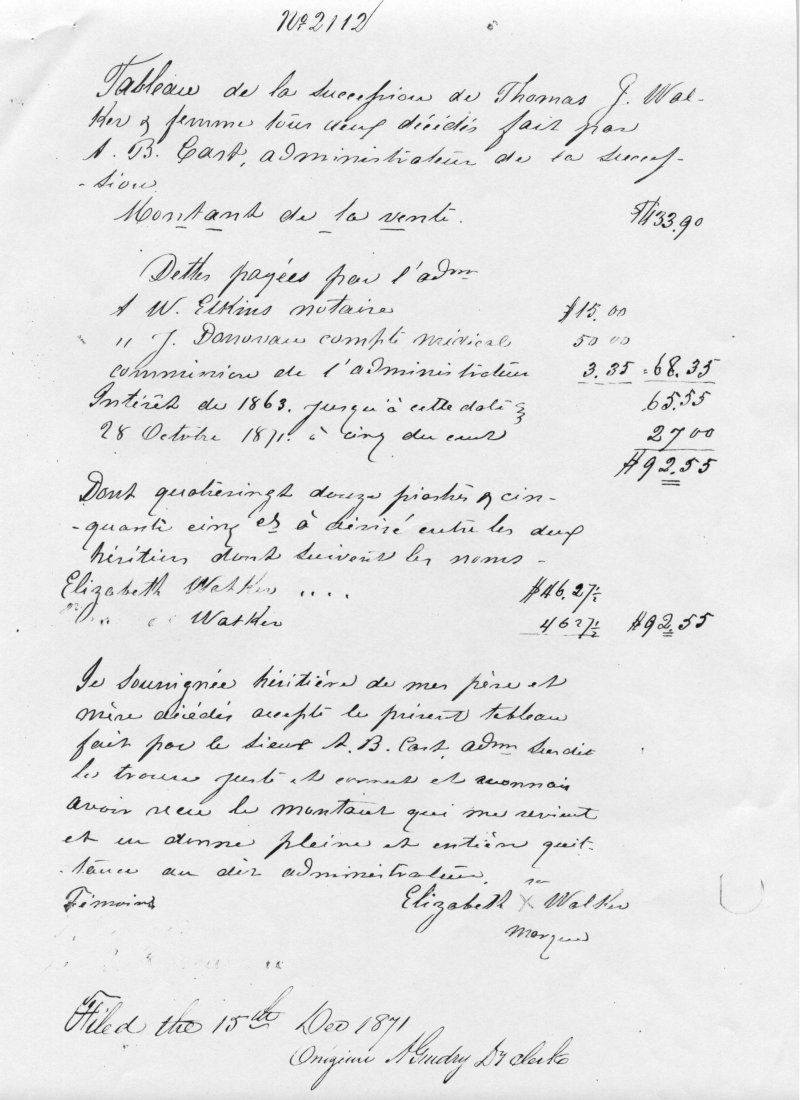 No. 2112
Tableau de la succession de Thomas J. Wal-
ker & femme tous deux décédés fait par
A. B. Cart, administrateur de la succes-
-sion
Montant de la vente. $133.90
Dettes payées par l'adm
A W. Elkins notaire $15.00
" J. Donovan compte médical 50 00
commission de l'administrateur 3.35 = 68.35
Intérêt de 1863. jusqu'à cette date 65.55
28 Octobre 1871. à cinq du cent 27 00
$92.55
Dont quatrevingt douze piastres & cin-
-quante cinq cts à divisé entre les deux
héritiers dont suivent les noms -
Elizabeth Walker " " $46.27½
Walker 46 27½ $92.55
Je soussignée héritière de mes père et
mère décédés accepte le présent tableau
fait par le sieur A. B. Cart, adm susdit
le trouve juste et correct et reconnais
avoir recu le montant qui me revient
et en donne pleine et entière quit-
-tance au dit administrateur.
Témoins Elizabeth X Walker
marque
Filed the 15th Dec 1871
A Guidry Dy clerk